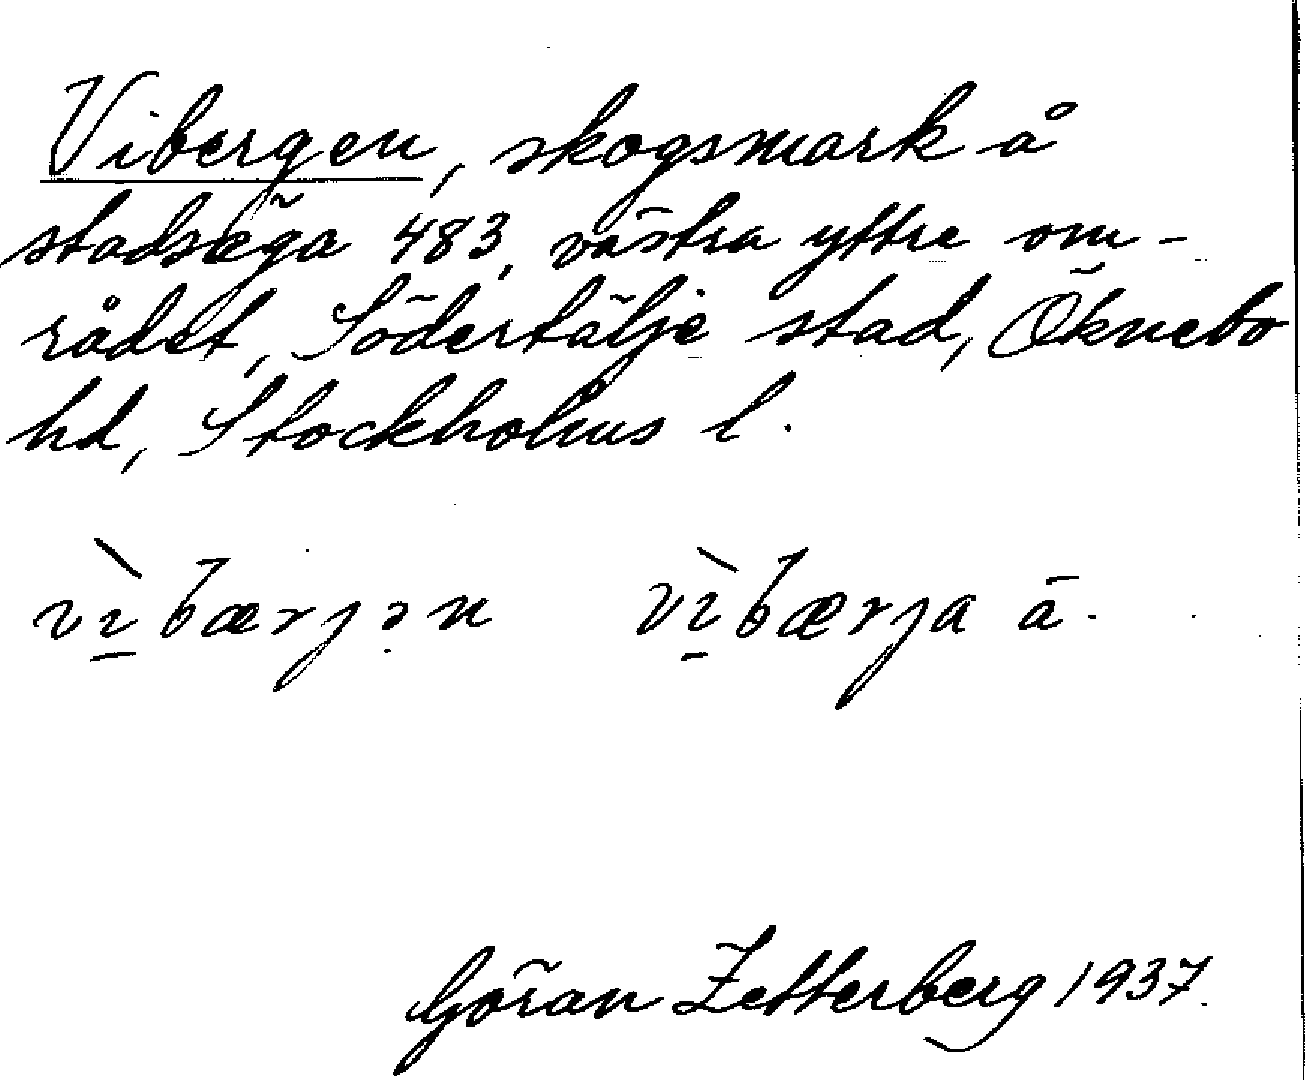 Vibergen, skogsmark å
stadsäga 483, västra yttre om-
rådet, Södertälje stad, Öknebo
hd, Stockholms l.
vı̱̀bærjən vı̱̀bærja ā.
Göran Zetterberg 1937.